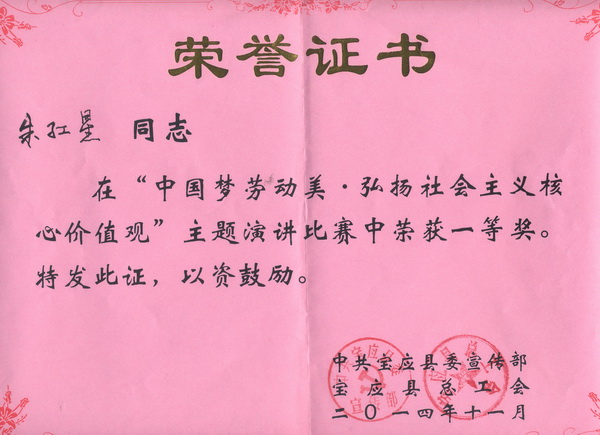 荣誉证书
朱红星 同志
在“中国梦劳动美·弘扬社会主义核
心价值观”主题演讲比赛中荣获一等奖。
特发此证，以资鼓励。
中共宝应县委宣传部
宝应县总工会
二〇一四年十一月